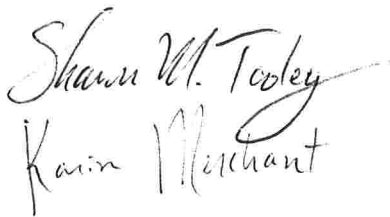 Shawn M. Tooley
Karin Merchant